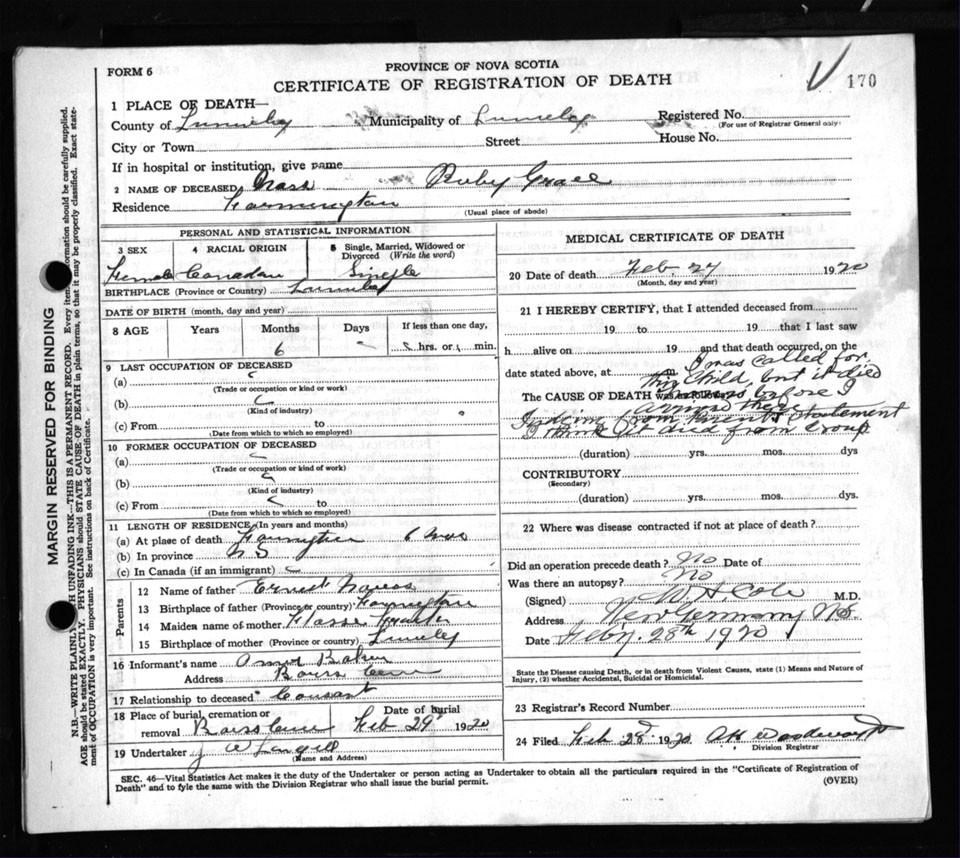 170
FORM 6
PROVINCE OF NOVA SCOTIA
CERTIFICATE OF REGISTRATION OF DEATH
1 PLACE OF DEATH—
County of Municipality of Registered No.
(For use of Registrar General only)
City or Town Street House No.
If in hospital or institution, give name
2 NAME OF DECEASED Ruby Grace
Residence Farmington
(Usual place of abode)
PERSONAL AND STATISTICAL INFORMATION
3 SEX 4 RACIAL ORIGIN 5 Single, Married, Widowed or Divorced (Write the word)
Female Canadian Single
BIRTHPLACE (Province or Country)
DATE OF BIRTH (month, day and year)
8 AGE Years Months Days If less than one day,
6 hrs. or min.
9 LAST OCCUPATION OF DECEASED
(a)
(Trade or occupation or kind or work)
(b)
(Kind of industry)
(c) From to
(Date from which to which so employed)
10 FORMER OCCUPATION OF DECEASED
(a)
(Trade or occupation or kind of work)
(b)
(Kind of industry)
(c) From to
(Date from which to which so employed)
11 LENGTH OF RESIDENCE (In years and months)
(a) At plase of death 6 mos
(b) In province N S
(c) In Canada (if an immigrant)
Parents
12 Name of father Ernest
13 Birthplace of father (Province or country)
14 Maiden name of mother
15 Birthplace of mother (Province or country)
16 Informant's name Baker
Address
17 Relationship to deceased
18 Place of burial, cremation or removal Date of burial
Feb 29 1920
19 Undertaker J W
(Name and Address)
MEDICAL CERTIFICATE OF DEATH
20 Date of death Feb. 27 1920
(Month, day and year)
21 I HEREBY CERTIFY, that I attended deceased from
19 to 19 that I last saw
h alive on 19 and that death occurred, on the
date stated above, at m. I was called for
this child, but it died
The CAUSE OF DEATH was as follows before I
from Parents statement
I think it died from Croup
(duration) yrs. mos. dys
CONTRIBUTORY
(Secondary)
(duration) yrs. mos. dys.
22 Where was disease contracted if not at place of death?
Did an operation precede death? No Date of
Was there an autopsy? No
(Signed) W. H. Cole M.D.
Address New Germany N.S.
Date Feby. 28th 1920
State the Disease causing Death, or in death from Violent Causes, state (1) Means and Nature of
Injury, (2) whether Accidental, Suicidal or Homicidal.
23 Registrar's Record Number
24 Filed Feb 28 1920
Division Registrar
SEC. 46—Vital Statistics Act makes it the duty of the Undertaker or person acting as Undertaker to obtain all the particulars required in the "Certificate of Registration of
Death" and to fyle the same with the Division Registrar who shall issue the burial permit. (OVER)
MARGIN RESERVED FOR BINDING
N.B.—WRITE PLAINLY UNFADING INK—THIS IS A PERMANENT RECORD. Every item information should be carefully supplied.
AGE should be stated EXACTLY. PHYSICIANS should STATE CAUSE OF DEATH in plain terms, so that it may be properly classified. Exact statement of OCCUPATION is very important. See instructions on back of Certificate.